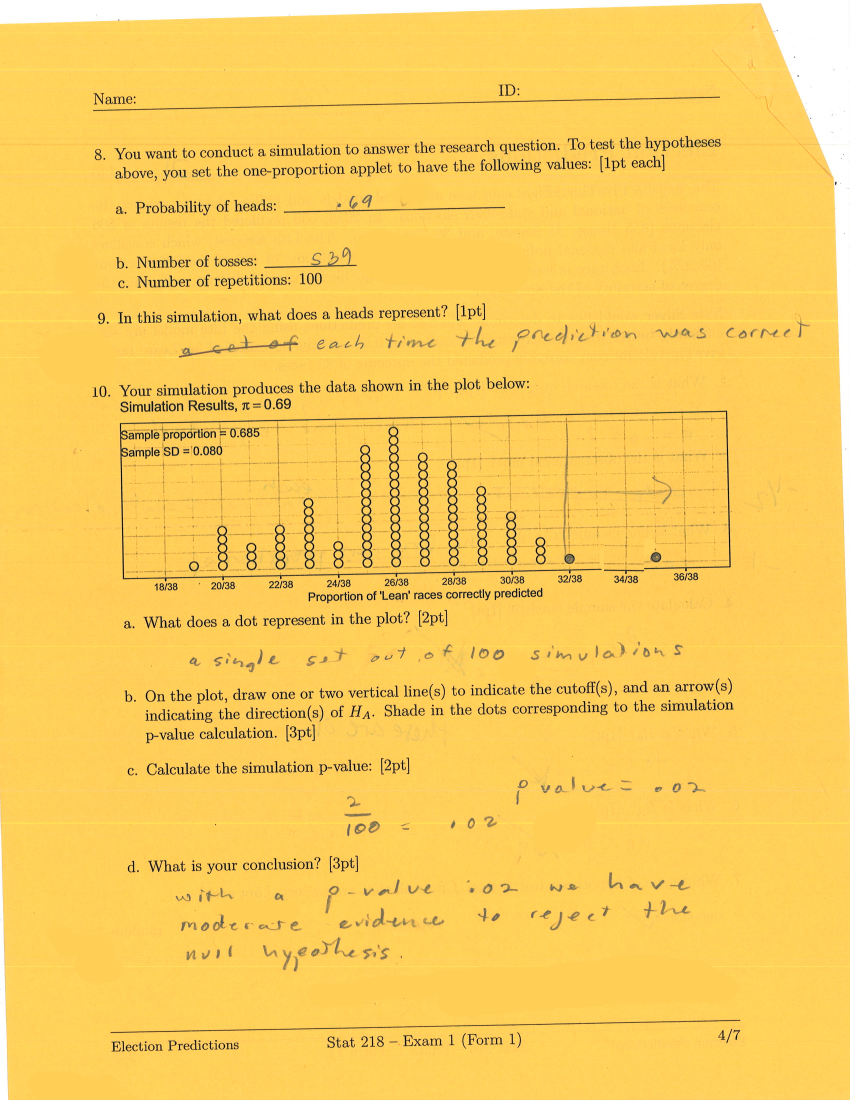 Name:
ID:
8. You want to conduct a simulation to answer the research question. To test the hypotheses
above, you set the one-proportion applet to have the following values: [1pt each]
a. Probability of heads: .69
b. Number of tosses: 539
c. Number of repetitions: 100
9. In this simulation, what does a heads represent? [1pt]
a set of each time the prediction was correct
10. Your simulation produces the data shown in the plot below:
Simulation Results, π = 0.69
Sample proportion = 0.685
Sample SD = 0.080
18/38 20/38 22/38 24/38 26/38 28/38 30/38 32/38 34/38 36/38
Proportion of 'Lean' races correctly predicted
a. What does a dot represent in the plot? [2pt]
a single set out of 100 simulations
b. On the plot, draw one or two vertical line(s) to indicate the cutoff(s), and an arrow(s)
indicating the direction(s) of H_A. Shade in the dots corresponding to the simulation
p-value calculation. [3pt]
c. Calculate the simulation p-value: [2pt]
p value = .02
2/100 = .02
d. What is your conclusion? [3pt]
with a p-value .02 we have
moderate evidence to reject the
null hypeothesis.
Election Predictions
Stat 218 – Exam 1 (Form 1)
4/7